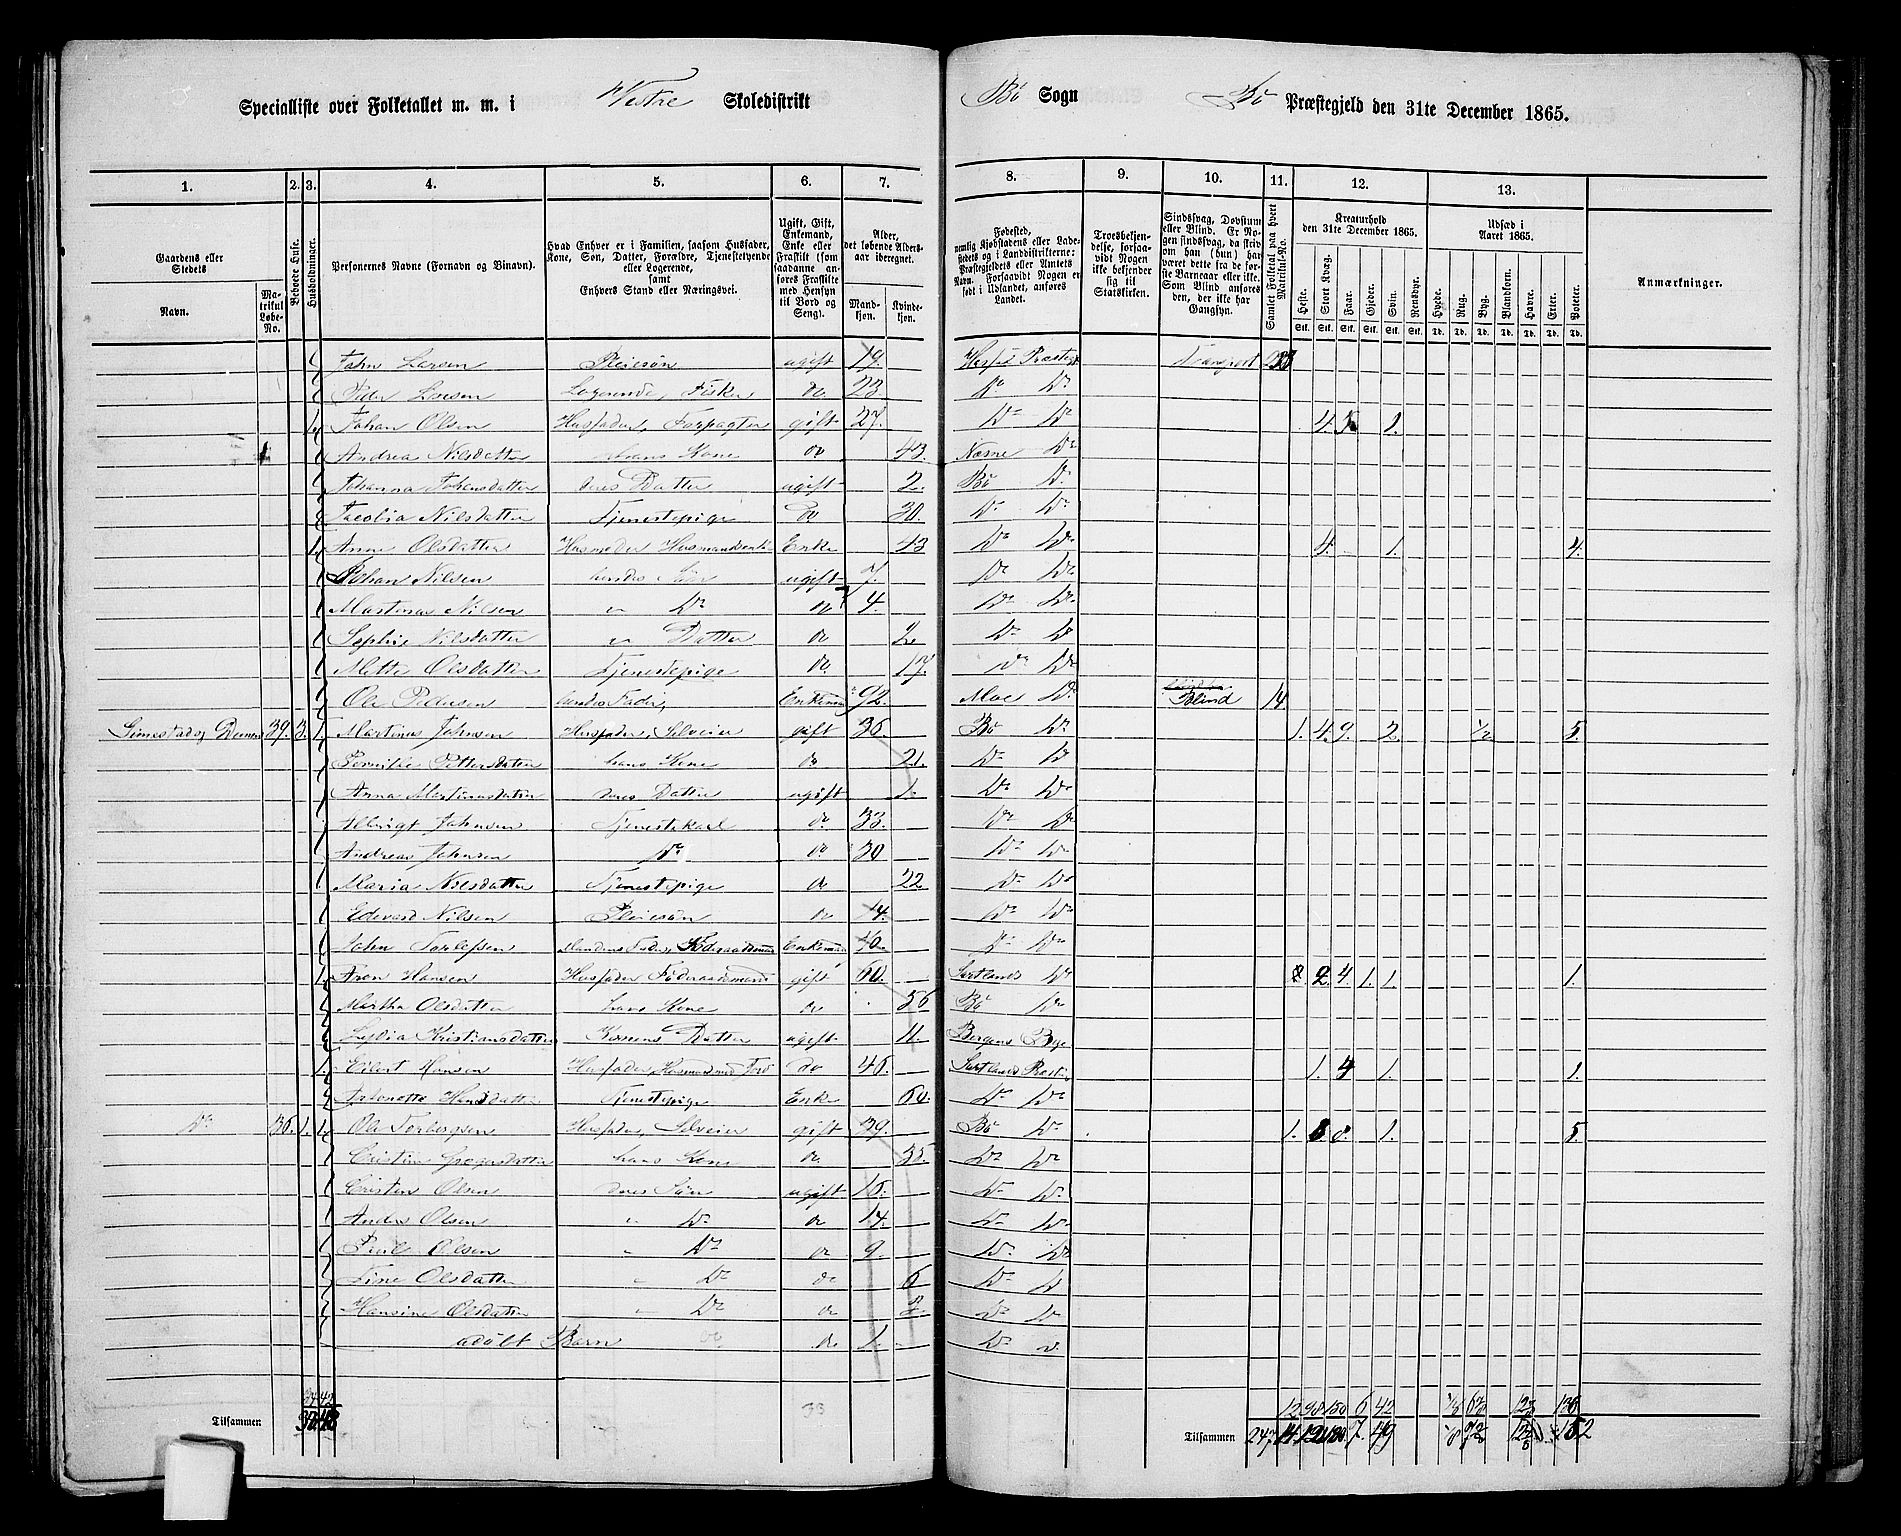 Specialliste over Folketallet m. m. i Vestre Skoledistrikt Bö Sogn Bö Præstegjeld den 31te December 1865.
1. 2. 3. 4. 5. 6. 7. 8. 9. 10. 11. 12. 13.
Gaardens eller Stedets
Navn.
Matrikul Løbe-No.
Beboede Huse.
Husholdninger.
Personernes Navne (Fornavn og Binavn).
Hvad Enhver er i Familien, saasom Husfader, Kone, Søn, Datter, Forældre, Tjenestetyende eller Logerende, samt Enhvers Stand eller Næringsvei.
Ugift, Gift, Enkemand, Enke eller Fraskilt (som saadanne anføres Fraskilte med Hensyn til Bord og Seng).
Alder, det løbende Aldersaar iberegnet.
Mandkjøn.
Kvindekjøn.
Fødested, nemlig Kjøbstadens eller Ladestedets og i Landdistrikterne: Præstegjeldets eller Amtets Navn. Forsaavidt Nogen er født i Udlandet, anføres Landet.
Troesbekjendelse, forsaavidt Nogen ikke bekjender sig til Statskirken.
Sindssvag, Døvstum eller Blind. Er Nogen sindssvag, da skrives om han (hun) har været dette fra de første Barneaar eller ikke. Som Blind anføres den, der ikke har Gangsyn.
Samlet Folketal paa hvert Matrikul-No.
Kreaturhold den 31te December 1865.
Heste. Stort Kvæg. Faar. Gjeder. Svin. Rensdyr.
Udsæd i Aaret 1865.
Hvede. Rug. Byg. Blandkorn. Havre. Erter. Poteter.
Anmærkninger.
Stk. Stk. Stk. Stk. Stk. Stk. Td. Td. Td. Td. Td. Td. Td.
John Larsen Pleiesön ugift 19. Transport
Peder Larsen Logerende, Fisker do 23. Do Do
Johan Olsen Husfader, Forpagter gift 27. Do Do 4. 1.
Andrea Nilsdatter hans Kone do 43. Næsne Do
Johanna Johansdatter deres Datter ugift 2. Bö Do
Jacobia Nilsdatter Tjenestepige do 30. Do Do
Anne Olsdatter Husmoder Enke 43 Do Do 4. 1. 4.
Johan Nilsen hendes Sön ugift 7. Do Do
Martinus Nilsen " Do do 4. Do Do
Sophie Nilsdatter " Datter do 2. Do Do
Mette Olsdatter Tjenestepige do 17. Do Do
Ole Pedersen hendes Fader, Enkemand 92. Moe Do Blind 14
39. 3. 1. Martinus Johnsen Husfader, Selveier gift 36. Bö Do 1. 4. 9. 2. 1/2 5.
Pernilæ Pettersdatter hans Kone do 21. Do Do
Anna Martinusdatter deres Datter ugift 1. Do Do
Albrigt Johnsen Tjenestekarl do 33. Do Do
Andreas Johnsen Do do 30 Do Do
Maria Nilsdatter Tjenestepige do 22 Do Do
Edevard Nilsen Pleiesön do 14. Do Do
John Torlefsen Mandens Fader, Föderaadsmand Enkemand Do Do
1. Aron Hansen Husfader Föderaadsmand gift 60. Do 2. 4. 1. 1. 1.
Martha Olsdatter hans Kone do 56 Bö Do
Lydia Kristiansdatter Konens Datter ugift 11. Bergens Bye
1. Eilert Hansen Husfader, Husmand med Jord do 46. 1. 4 1. 1.
Antonette Hansdatter Tjenestepige Enke 60. Do Do
Do 36. 1. 1. Ole Torbergsen Husfader, Selveier gift 39. Bö Do 1. 8. 1. 5.
hans Kone do 35. Do Do
Cristen Olsen deres Sön ugift 16. Do Do
Anders Olsen " Do do 14. Do Do
Paul Olsen " Do do 9. Do Do
Line Olsdatter " Do do 6 Do Do
Hansine Olsdatter " Do do Do Do
udöbt Barn do do 1. Do Do
12 98 150 6 42 136
Tilsammen 33 Tilsammen 247 14 7 49 152